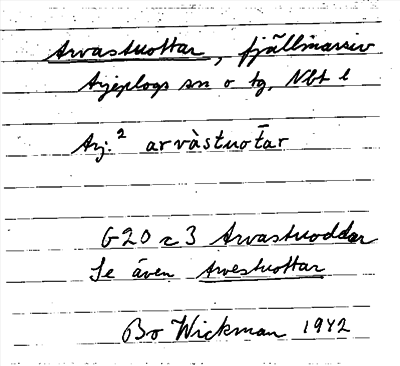 Arvastuottar, fjällmassiv
Arjeplogs sn o tg, Nbt l
Arj.² arvàstuoťar
G20 c3 Arvastuoddar
Se även Arvestuottar
Bo Wickman 1942